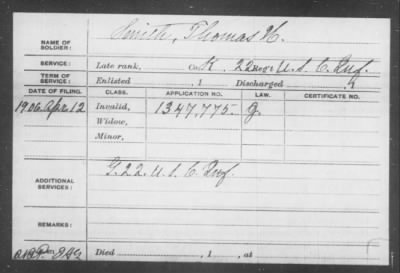 NAME OF SOLDIER: Smith, Thomas H.
SERVICE: Late rank, Co. K. 22 Reg't U. S. C. Inf.
TERM OF SERVICE: Enlisted , 1 Discharged , 1
DATE OF FILING. CLASS. APPLICATION NO. LAW. CERTIFICATE NO.
1906 Apr. 12 Invalid, 1347.775. G.
Widow,
Minor,
ADDITIONAL SERVICES: G. 22. U. S. C. Inf.
REMARKS:
Died , 1 , at